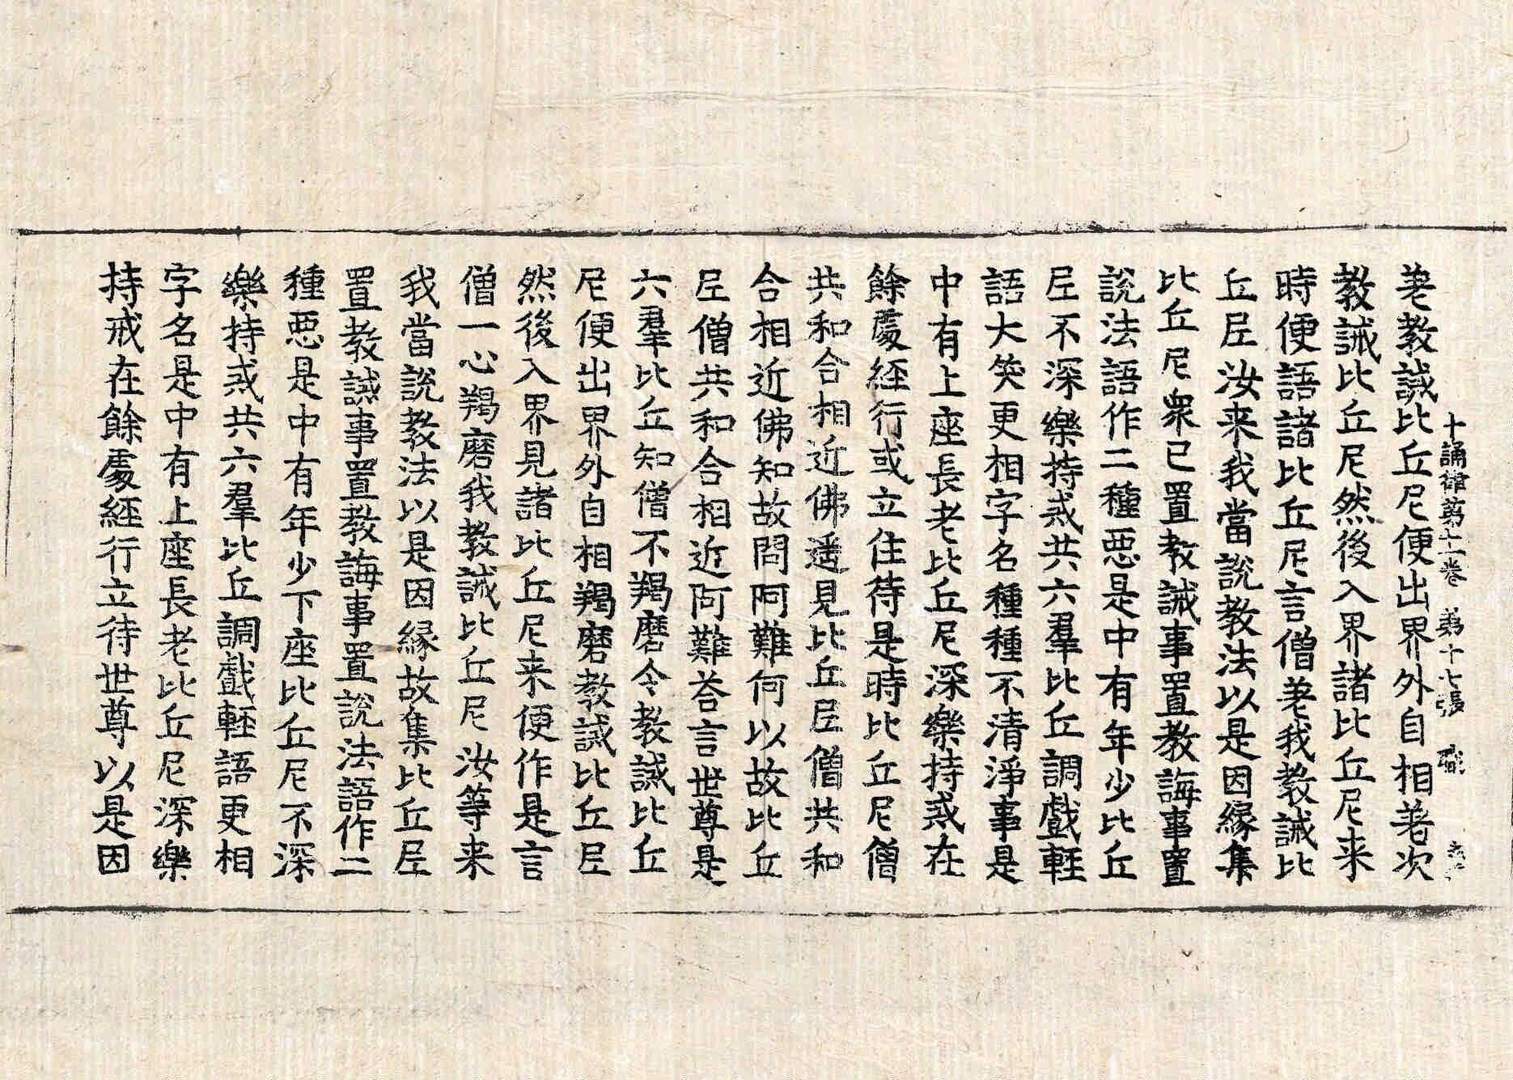 十誦律第十一卷 第十七張 職
差教誡比丘尼便出界外自相差次
教誡比丘尼然後入界諸比丘尼来
時便語諸比丘尼言僧差我教誡比
丘尼汝来我當說教法以是因緣集
比丘尼衆已置教誡事置教誨事置
說法語作二種惡是中有年少比丘
尼不深樂持戒共六羣比丘調戲輕
語大笑更相字名種種不清淨事是
中有上座長老比丘尼深樂持戒在
餘處經行或立住待是時比丘尼僧
共和合相近佛遥見比丘尼僧共和
合相近佛知故問阿難何以故比丘
尼僧共和合相近阿難荅言世尊是
六羣比丘知僧不羯磨令教誡比丘
尼便出界外自相羯磨教誡比丘尼
然後入界見諸比丘尼来便作是言
僧一心羯磨我教誡比丘尼汝等来
我當說教法以是因緣故集比丘尼
置教誡事置教誨事置說法語作二
種惡是中有年少下座比丘尼不深
樂持戒共六羣比丘調戲輕語更相
字名是中有上座長老比丘尼深樂
持戒在餘處經行立待世尊以是因